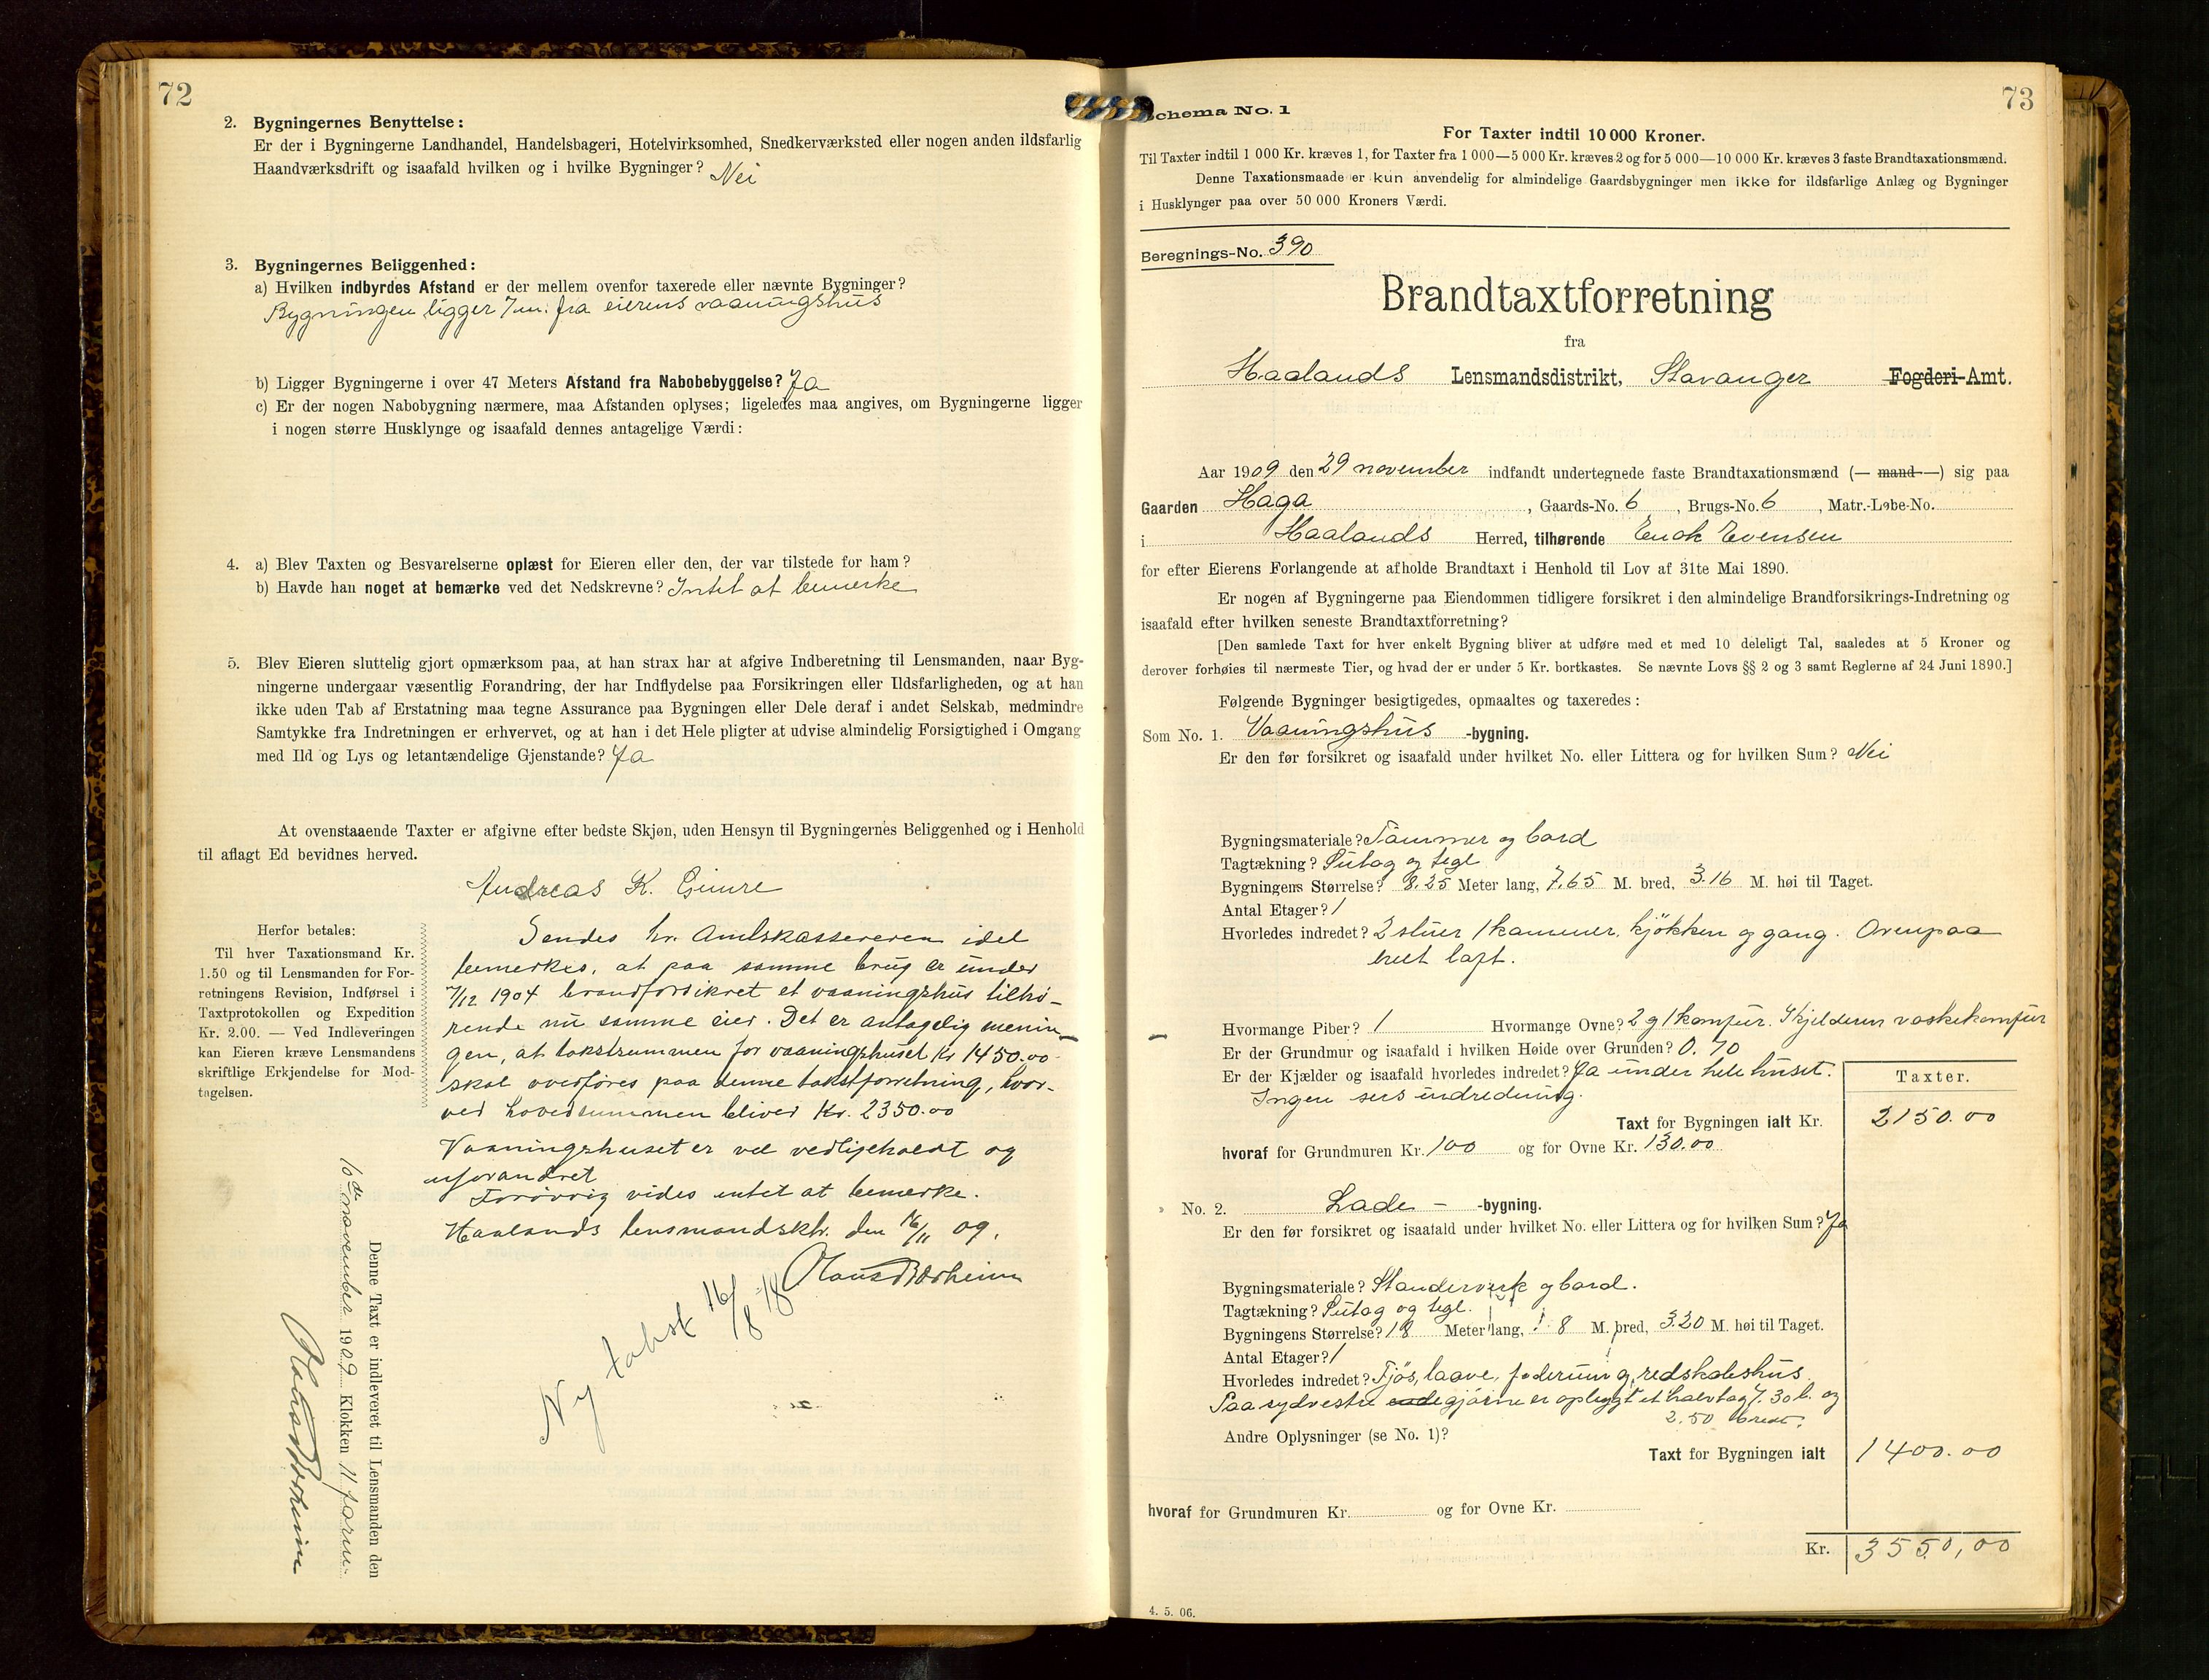 72
2. Bygningernes Benyttelse:
Er der i Bygningerne Landhandel, Handelsbageri, Hotelvirksomhed, Snedkerværksted eller nogen anden ildsfarlig
Haandværksdrift og isaafald hvilken og i hvilke Bygninger? Nei
3. Bygningernes Beliggenhed:
a) Hvilken indbyrdes Afstand er der mellem ovenfor taxerede eller nævnte Bygninger?
Bygningen ligger 7 m. fra eierens vaaningshus
b) Ligger Bygningerne i over 47 Meters Afstand fra Nabobebyggelse? Ja
c) Er der nogen Nabobygning nærmere, maa Afstanden oplyses; ligeledes maa angives, om Bygningerne ligger
i nogen større Husklynge og isaafald dennes antagelige Værdi:
4. a) Blev Taxten og Besvarelserne oplæst for Eieren eller den, der var tilstede for ham?
b) Havde han noget at bemærke ved det Nedskrevne? Intet at bemerke
5. Blev Eieren sluttelig gjort opmærksom paa, at han strax har at afgive Indberetning til Lensmanden, naar Byg-
ningerne undergaar væsentlig Forandring, der har Indflydelse paa Forsikringen eller Ildsfarligheden, og at han
ikke uden Tab af Erstatning maa tegne Assurance paa Bygningen eller Dele deraf i andet Selskab, medmindre
Samtykke fra Indretningen er erhvervet, og at han i det Hele pligter at udvise almindelig Forsigtighed i Omgang
med Ild og Lys og letantændelige Gjenstande? Ja
At ovenstaaende Taxter er afgivne efter bedste Skjøn, uden Hensyn til Bygningernes Beliggenhed og i Henhold
til aflagt Ed bevidnes herved.
Andreas K. Gimre
Herfor betales:
Til hver Taxationsmand Kr.
1.50 og til Lensmanden for For-
retningens Revision, Indførsel i
Taxtprotokollen og Expedition
Kr. 2.00. — Ved Indleveringen
kan Eieren kræve Lensmandens
skriftlige Erkjendelse for Mod-
tagelsen.
Sendes hr. Amtskassereren idet
bemerkes, at paa samme brug er under
7/12 1904 brandforsikret et vaaningshus tilhø-
rende nu samme eier. Det er antagelig menin-
gen, at takstsummen for vaaningshuset Kr 1450.00
skal overføres paa denne takstforretning, hvor-
ved hovedsummen bliver Kr. 2350.00
Vaaningshuset er vel vedligeholdt og
uforandret
Forøvrig vides intet at bemerke.
Haalands lensmandsktr. den 16/11 09.
Olaus Borheim
Ny takst 16/8 18
Denne Taxt er indleveret til Lensmanden den
10de november 1909 Klokken 11 form.
Olaus Borheim
73
Schema No. 1
For Taxter indtil 10 000 Kroner.
Til Taxter indtil 1 000 Kr. kræves 1, for Taxter fra 1 000—5 000 Kr. kræves 2 og for 5 000—10 000 Kr. kræves 3 faste Brandtaxationsmænd.
Denne Taxationsmaade er kun anvendelig for almindelige Gaardsbygninger men ikke for ildsfarlige Anlæg og Bygninger
i Husklynger paa over 50 000 Kroners Værdi.
Beregnings-No. 390
Brandtaxtforretning
fra
Haalands Lensmandsdistrikt, Stavanger Fogderi-Amt.
Aar 1909 den 29 november indfandt undertegnede faste Brandtaxationsmænd (— mand —) sig paa
Gaarden Haga, Gaards-No. 6, Brugs-No. 6, Matr.-Løbe-No.
i Haalands Herred, tilhørende Enok Evensen
for efter Eierens Forlangende at afholde Brandtaxt i Henhold til Lov af 31te Mai 1890.
Er nogen af Bygningerne paa Eiendommen tidligere forsikret i den almindelige Brandforsikrings-Indretning og
isaafald efter hvilken seneste Brandtaxtforretning?
[Den samlede Taxt for hver enkelt Bygning bliver at udføre med et med 10 deleligt Tal, saaledes at 5 Kroner og
derover forhøies til nærmeste Tier, og hvad der er under 5 Kr. bortkastes. Se nævnte Lovs §§ 2 og 3 samt Reglerne af 24 Juni 1890.]
Følgende Bygninger besigtigedes, opmaaltes og taxeredes:
Som No. 1. Vaaningshus -bygning.
Er den før forsikret og isaafald under hvilket No. eller Littera og for hvilken Sum? Nei
Bygningsmateriale? Tømmer og bord
Tagtækning? Sutag og tegl
Bygningens Størrelse? 8.25 Meter lang, 7.65 M. bred, 3.16 M. høi til Taget.
Antal Etager? 1
Hvorledes indredet? 2 stuer 1 kammer, kjøkken og gang. Ovenpaa
bret loft.
Hvormange Piber? 1 Hvormange Ovne? 2 og 1 komfur. I kjelderen vaskekomfur
Er der Grundmur og isaafald i hvilken Høide over Grunden? 0.70
Er der Kjælder og isaafald hvorledes indredet? Ja under hele huset.
Ingen sers indredning.
Taxter.
Taxt for Bygningen ialt Kr. 2150.00
hvoraf for Grundmuren Kr. 100 og for Ovne Kr. 130.00
No. 2. Lade - -bygning.
Er den før forsikret og isaafald under hvilket No. eller Littera og for hvilken Sum? Ja
Bygningsmateriale? Standerverk og bord.
Tagtækning? Sutag og tegl.
Bygningens Størrelse? 18 Meter lang, 8 M. bred, 3.20 M. høi til Taget.
Antal Etager? 1
Hvorledes indredet? Fjøs, laave, foderrum og redskabshus
Paa sydvestre gjerne er oplagt et halvtag 7.30 l. og
2.50 bred.
Andre Oplysninger (se No. 1)?
Taxt for Bygningen ialt 1400.00
hvoraf for Grundmuren Kr. og for Ovne Kr.
Kr. 3550,00
4. 5. 06.